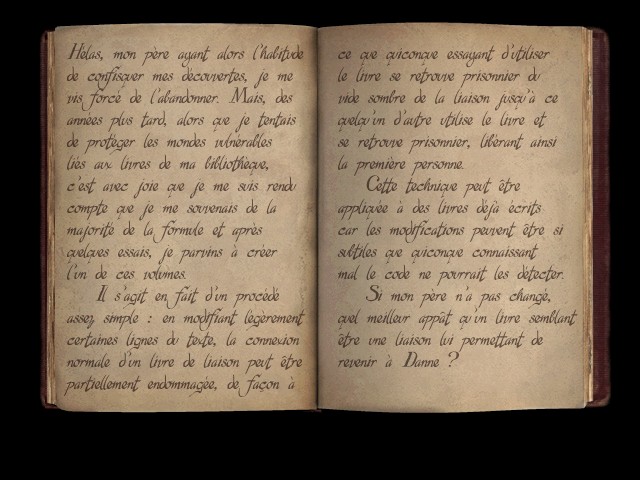 Hélas, mon père ayant alors l'habitude
de confisquer mes découvertes, je me
vis forcé de l'abandonner. Mais, des
années plus tard, alors que je tentais
de protéger les mondes vulnérables
liés aux livres de ma bibliothèque,
c'est avec joie que je me suis rendu
compte que je me souvenais de la
majorité de la formule et après
quelques essais, je parvins à créer
l'un de ces volumes.
Il s'agit en fait d'un procédé
assez simple : en modifiant légèrement
certaines lignes du texte, la connexion
normale d'un livre de liaison peut être
partiellement endommagée, de façon à
ce que quiconque essayant d'utiliser
le livre se retrouve prisonnier du
vide sombre de la liaison jusqu'à ce
quelqu'un d'autre utilise le livre et
se retrouve prisonnier, libérant ainsi
la première personne.
Cette technique peut être
appliquée à des livres déjà écrits
car les modifications peuvent être si
subtiles que quiconque connaissant
mal le code ne pourrait les détecter.
Si mon père n'a pas changé,
quel meilleur appât qu'un livre semblant
être une liaison lui permettant de
revenir à Danne ?